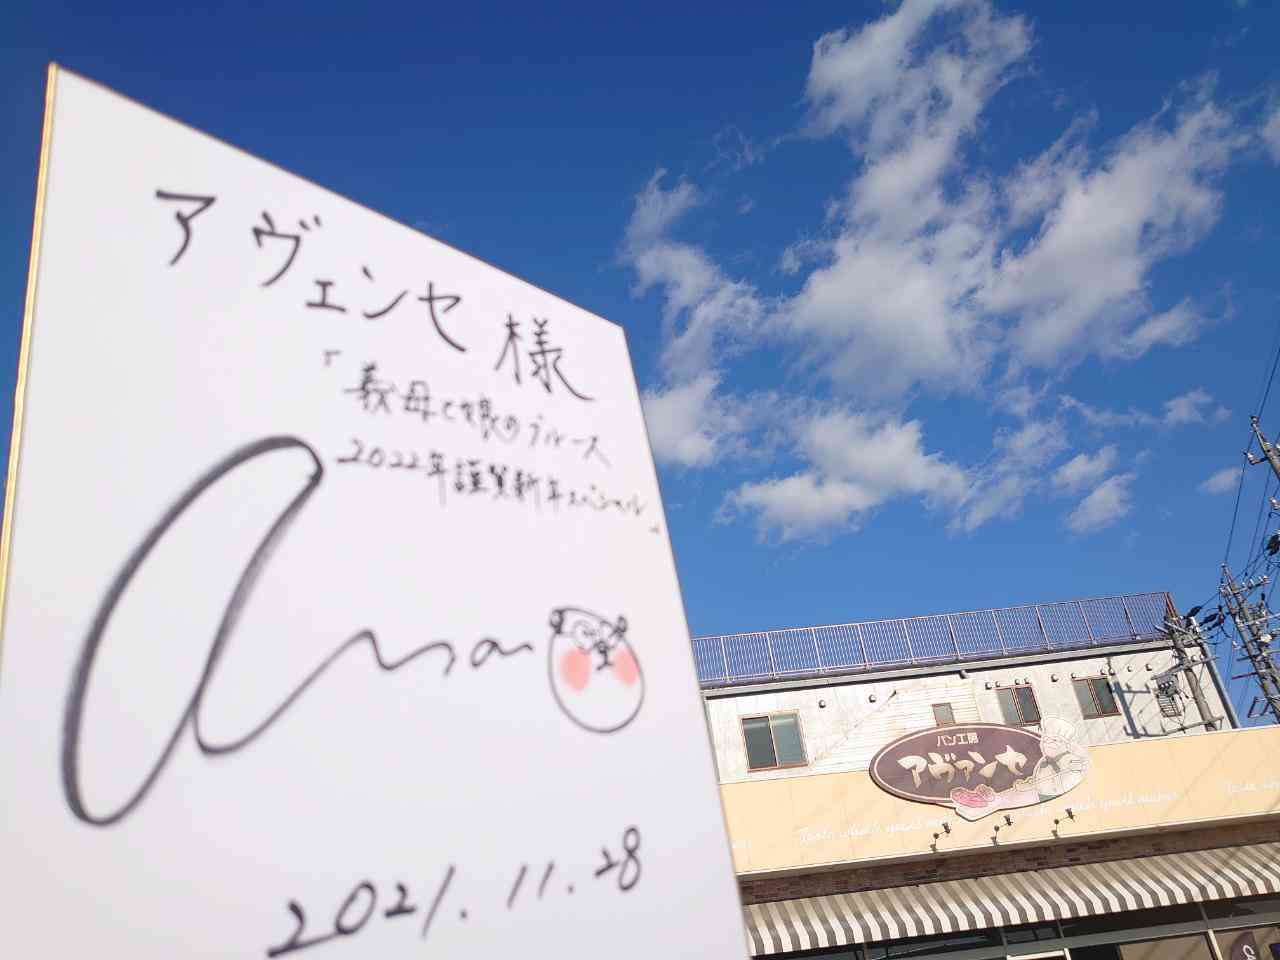 アヴェンセ様
「義母と娘のブルース
2022年謹賀新年スペシャル」
2021.11.28
パン工房
アヴァンセ